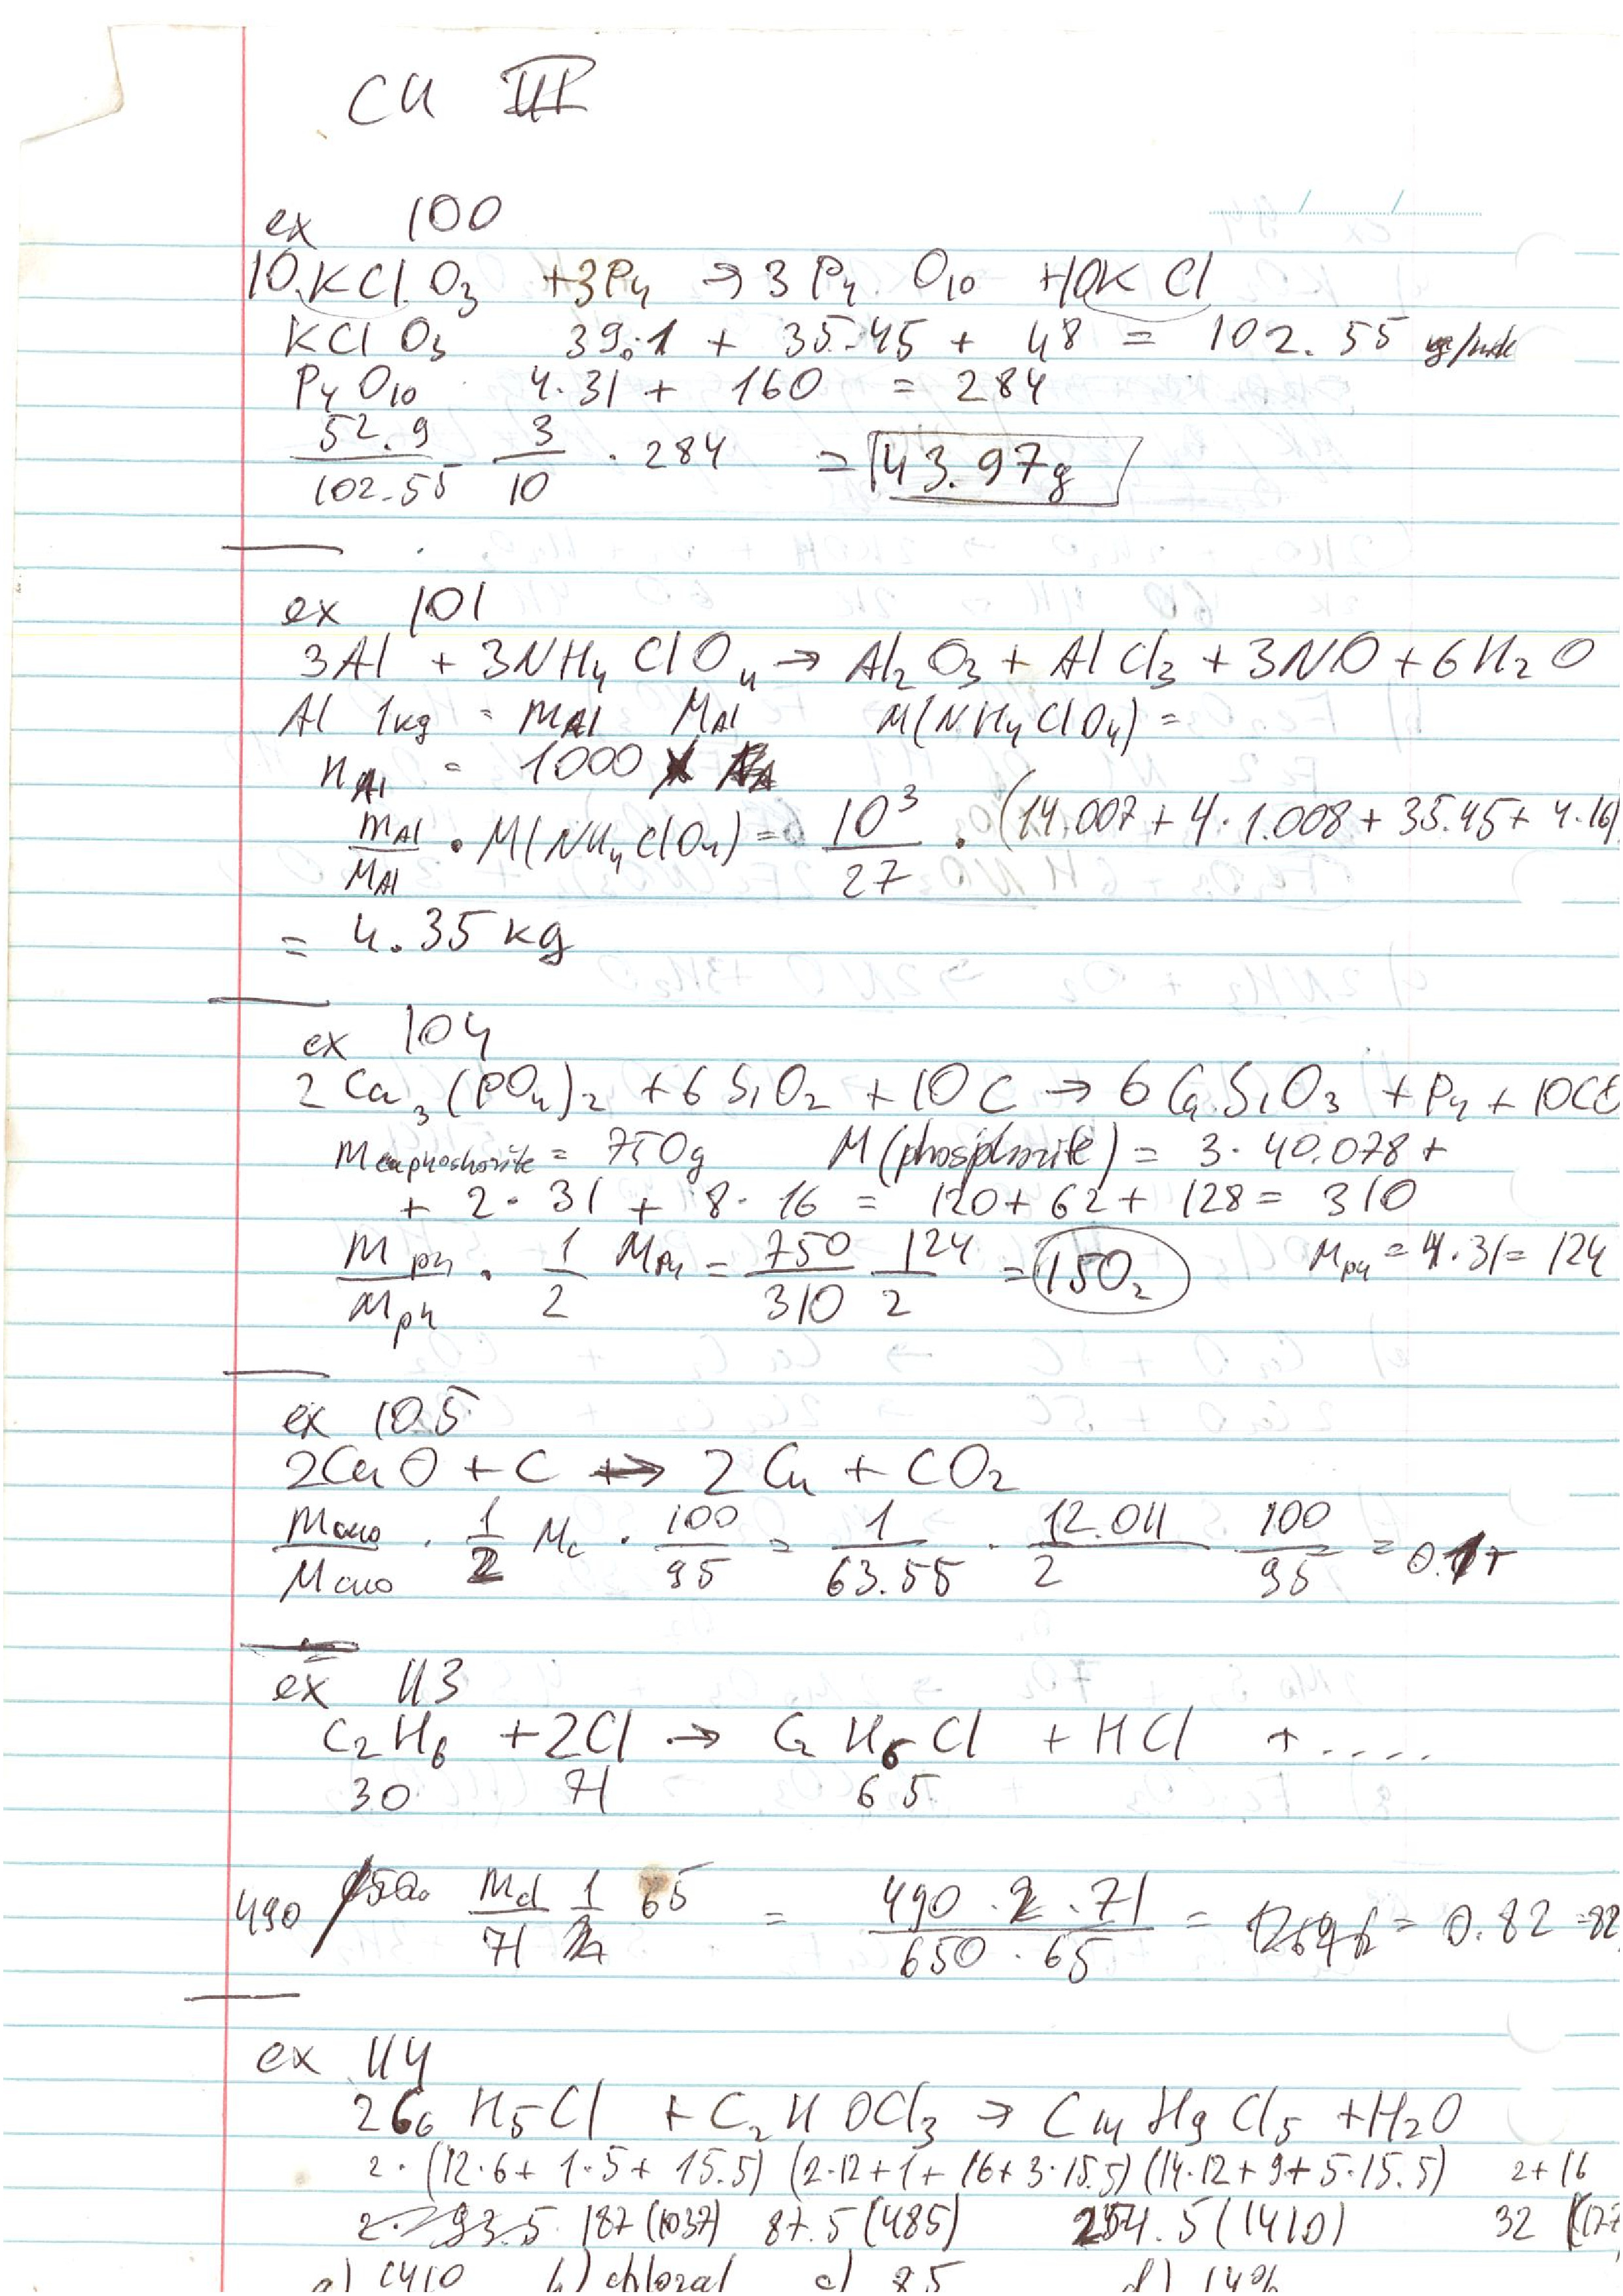 CH III
ex 100
10 KClO3 + 3P4 → 3P4 O10 + 10KCl
KClO3 39.1 + 35.45 + 48 = 102.55 g/mole
P4O10 4·31 + 160 = 284
52.9/102.55 3/10 · 284 = 43.97g
ex 101
3Al + 3NH4ClO4 → Al2O3 + AlCl3 + 3NO + 6H2O
Al 1kg = mAl MAl M(NH4ClO4) =
nAl = 1000
mAl/MAl · M(NH4ClO4) = 10^3/27 · (14.007 + 4·1.008 + 35.45 + 4·16)
= 4.35 kg
ex 104
2Ca3(PO4)2 + 6SiO2 + 10C → 6CaSiO3 + P4 + 10CO
= 750g M(phosphorite) = 3·40.078 +
+ 2·31 + 8·16 = 120 + 62 + 128 = 310
mP4/MP4 · 1/2 MP4 = 750/310 124/2 = 150g MP4 = 4·31 = 124
ex 105
2CuO + C → 2Cu + CO2
mCuO/MCuO · 1/2 MC · 100/95 = 1/63.55 · 12.011/2 100/95 = 0.1
ex 113
C2H6 + 2Cl → C2H5Cl + HCl + ....
30 71 65
490 mcl/71 1/2 65 = 490·2·71/650·65 = 0.82 = 82
ex 114
2C6H5Cl + C2HOCl3 → C14H9Cl5 + H2O
2·(12·6 + 1·5 + 15.5) (2·12 + 1 + 16 + 3·15.5) (14·12 + 9 + 5·15.5) 2 + 16
2·93.5 187 (1037) 87.5 (485) 254.5 (1410) 32
a) 1410 b) chloral c) 85 d) 14%